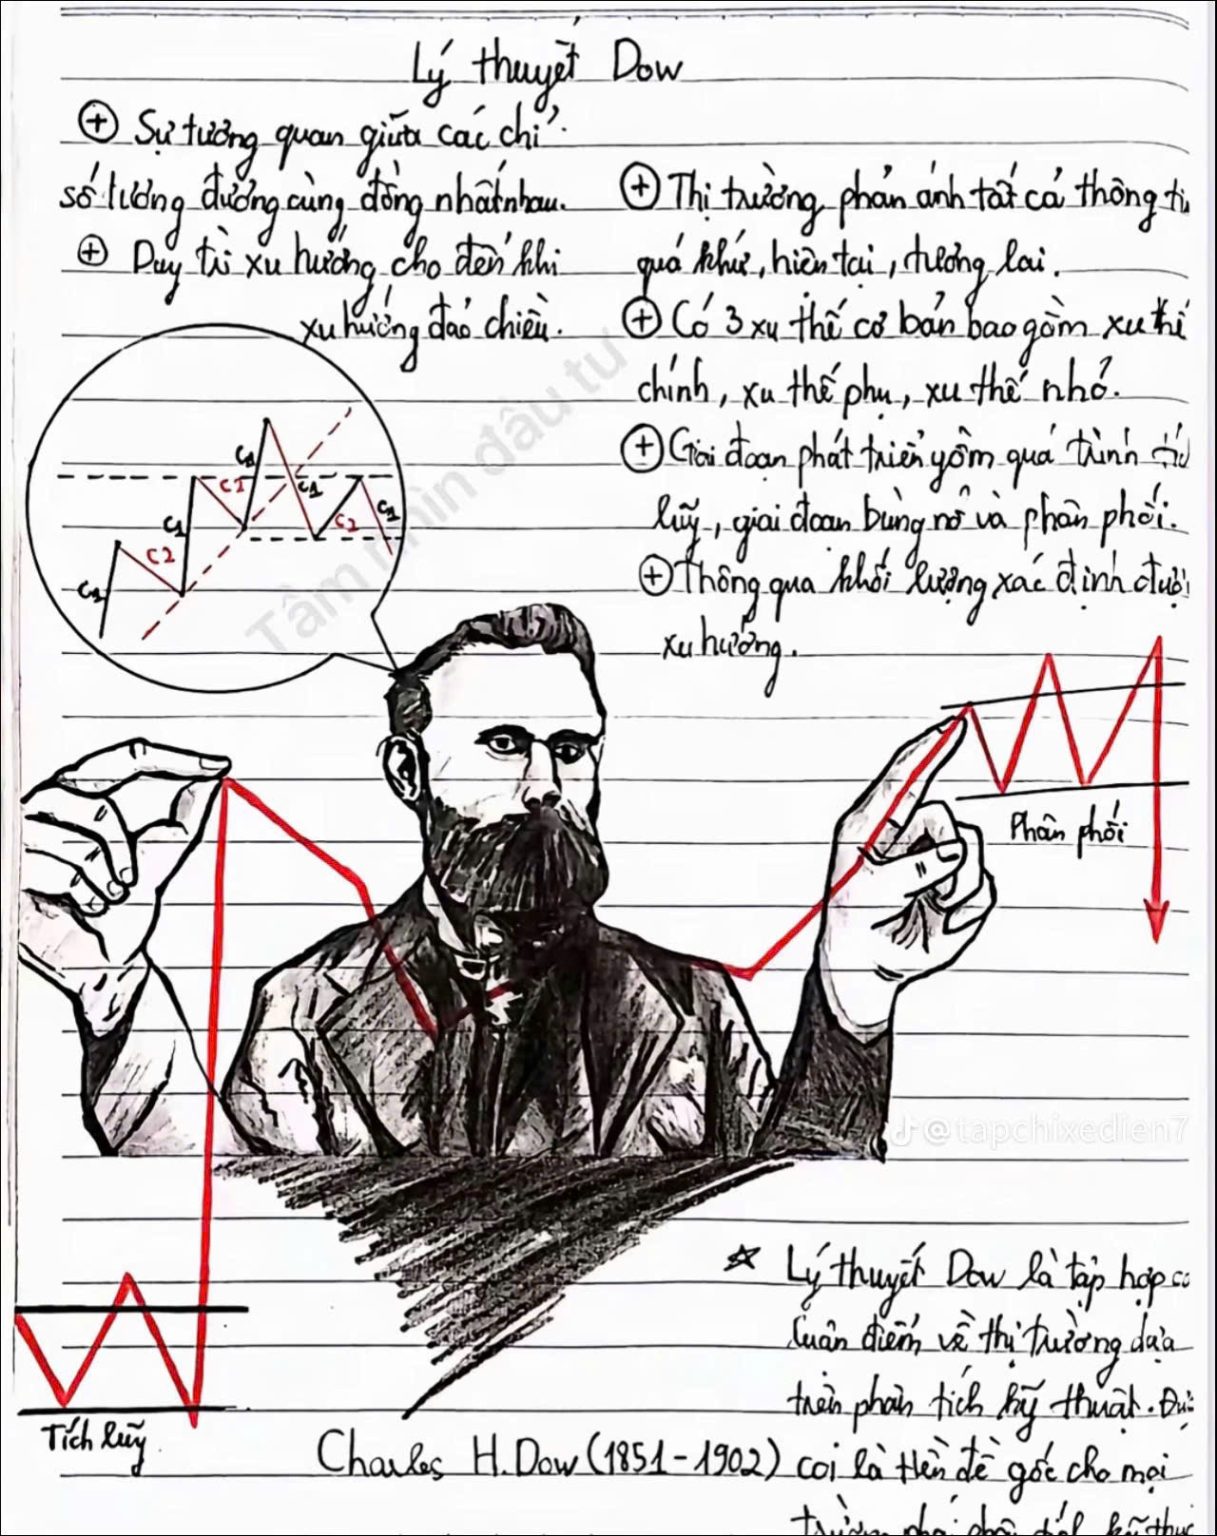 Lý thuyết Dow
⊕ Sự tương quan giữa các chỉ
số tương đương cùng đồng nhất nhau.
⊕ Duy trì xu hướng cho đến khi
xu hướng đảo chiều.
⊕ Thị trường phản ánh tất cả thông
quá khứ, hiện tại, tương lai.
⊕ Có 3 xu thế cơ bản bao gồm xu
chính, xu thế phụ, xu thế nhỏ.
⊕ Giai đoạn phát triển gồm quá trình
lũy, giai đoạn bùng nổ và phân phối.
⊕ Thông qua khối lượng xác định
xu hướng.
C1
C2
C1
C2
C1
C1
C2
C1
Tầm nhìn đầu tư
Phân phối
@tapchixedien7
Tích lũy
Charles H. Dow (1851-1902)
☆ Lý thuyết Dow là tập hợp
luận điểm về thị trường dựa
trên phân tích kỹ thuật.
coi là tiền đề gốc cho mọi